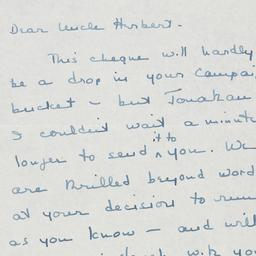 Dear Uncle Herbert -
This cheque will hardly
be a drop in your Campai
bucket - but Jonathan
I couldn't wait a minute
longer to send it to you. We
are thrilled beyond word
at your decision to run
as you know - and will
with yo